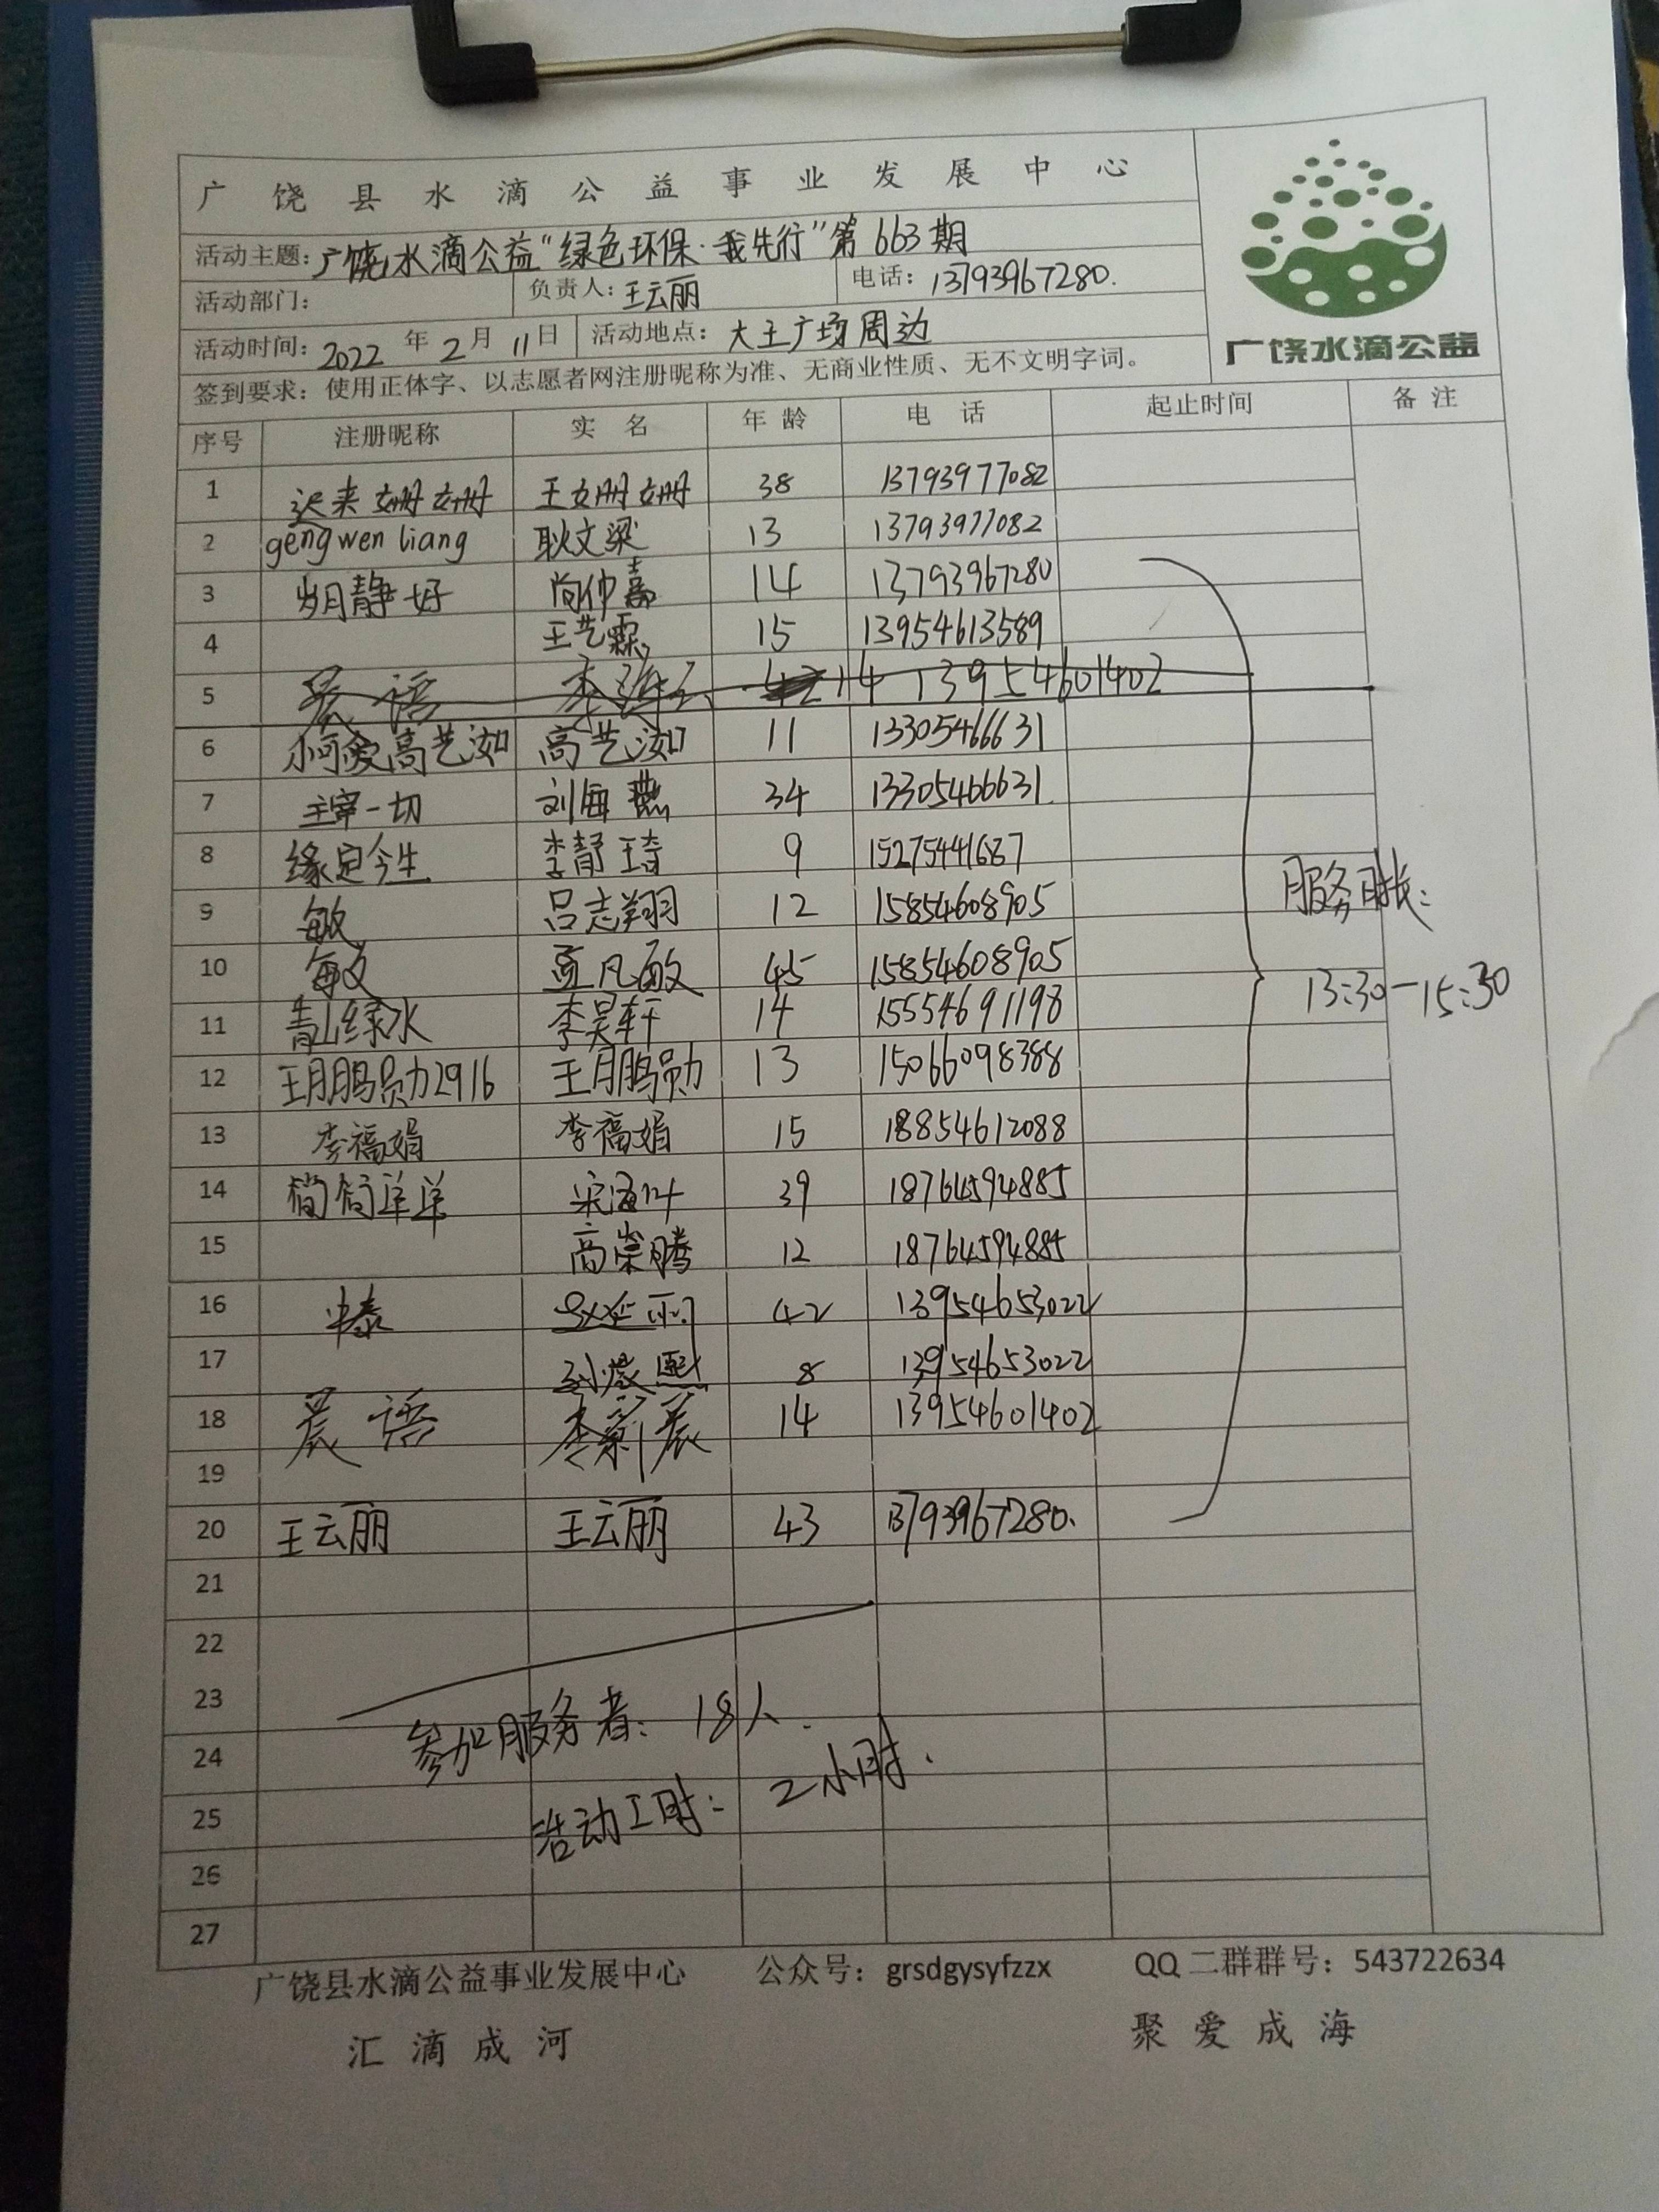 广饶县水滴公益事业发展中心
活动主题：广饶水滴公益“绿色环保·我先行”第663期
活动部门： 负责人：王云丽 电话：13793967280.
活动时间：2022年2月11日 活动地点：大王广场周边
广饶水滴公益
签到要求：使用正体字、以志愿者网注册昵称为准、无商业性质、无不文明字词。
序号 注册昵称 实名 年龄 电话 起止时间 备注
1 迟来姗姗 王姗姗 38 13793977082
2 gengwen liang 耿文梁 13 13793977082
3 岁月静好 尚仲嘉 14 13793967280
4 王艺霖 15 13954613589
5 晨语 14 13954601402
6 小可爱高艺洳 高艺洳 11 13305466631
7 主宰一切 刘海燕 34 13305466631
8 缘定今生 李静琦 9 15275441687
9 敏 吕志翔 12 15854608905
10 敏 孟凡敏 45 15854608905
11 青山绿水 李昊轩 14 15554691198
12 王鹏勋2916 王鹏勋 13 15066098388
13 李福娟 李福娟 15 18854612088
14 简简单单 宋海叶 39 18764594885
15 高崇腾 12 18764594885
16 中泰 42 13954653022
17 8 13954653022
18 晨语 李蓟晨 14 13954601402
19
20 王云丽 王云丽 43 13793967280.
服务时长：
13:30-15:30
21
22
23
参加服务者：18人.
24
活动工时：2小时.
25
26
27
广饶县水滴公益事业发展中心 公众号：grsdgysyfzzx QQ二群群号：543722634
汇滴成河 聚爱成海